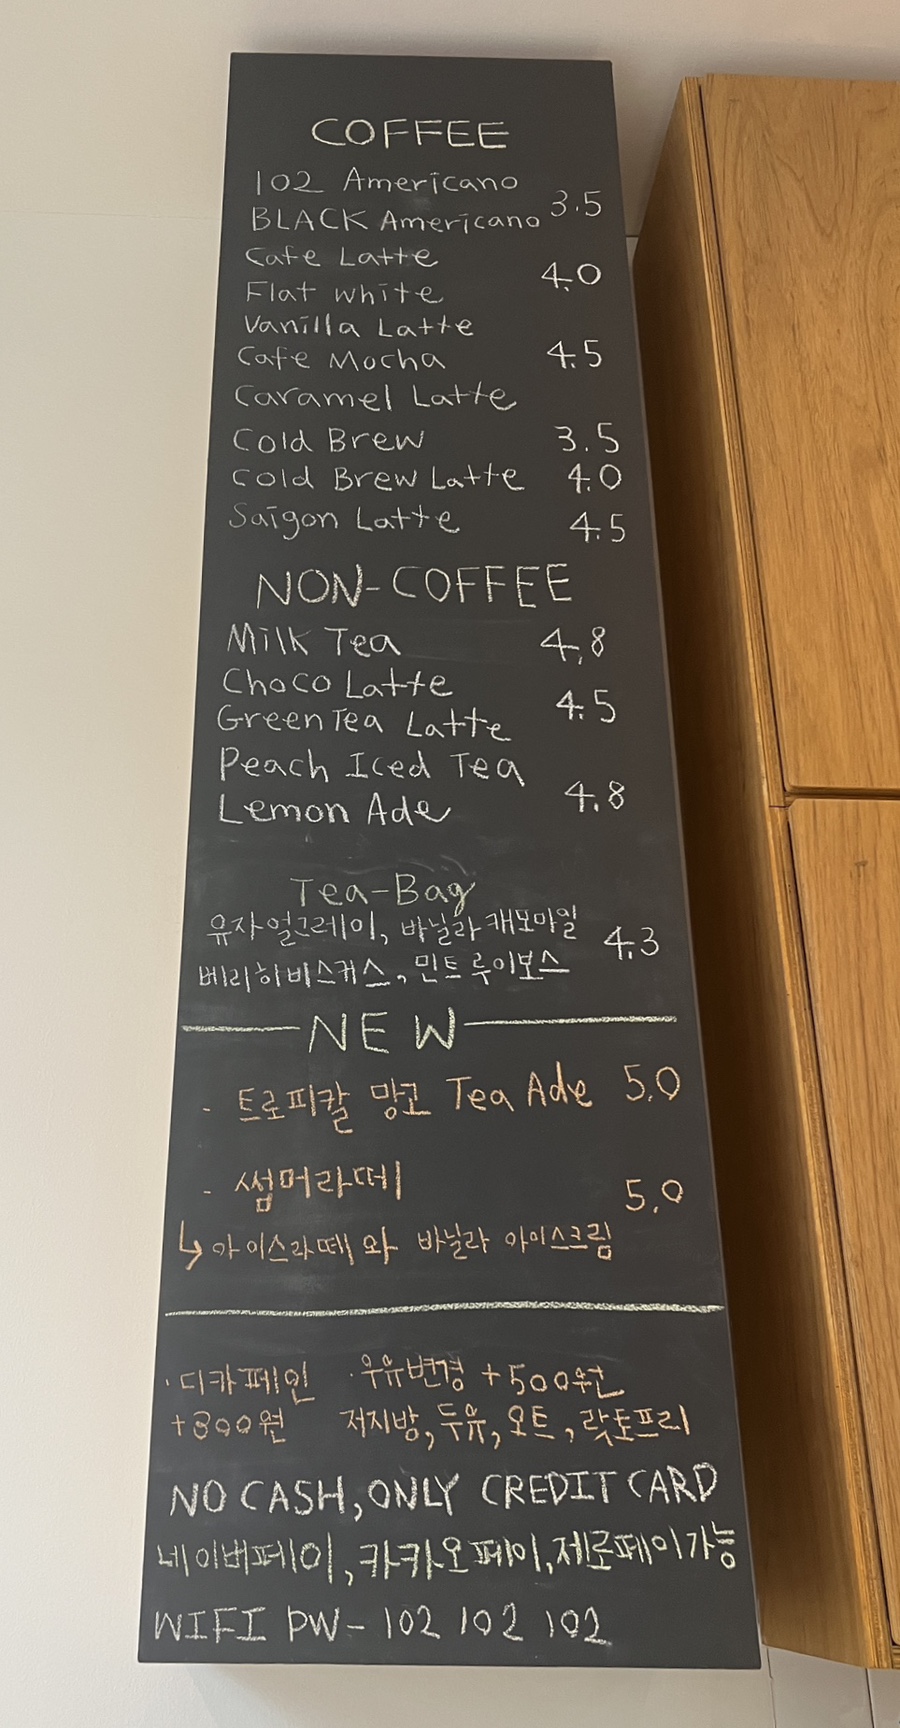 COFFEE
102 Americano
BLACK Americano 3.5
Cafe Latte
Flat white 4.0
Vanilla Latte
Cafe Mocha 4.5
Caramel Latte
Cold Brew 3.5
Cold Brew Latte 4.0
Saigon Latte 4.5
NON-COFFEE
Milk Tea 4,8
Choco Latte
Green Tea Latte 4.5
Peach Iced Tea
Lemon Ade 4.8
Tea-Bag
유자얼그레이, 바닐라캐모마일
베리히비스커스, 민트루이보스 4.3
NEW
- 트로피칼 망고 Tea Ade 5.0
- 썸머라떼 5.0
↳ 아이스라떼와 바닐라 아이스크림
·디카페인 ·우유변경 +500원
+300원 저지방, 두유, 오트, 락토프리
NO CASH, ONLY CREDIT CARD
네이버페이, 카카오페이, 제로페이가능
WIFI PW- 102 102 102